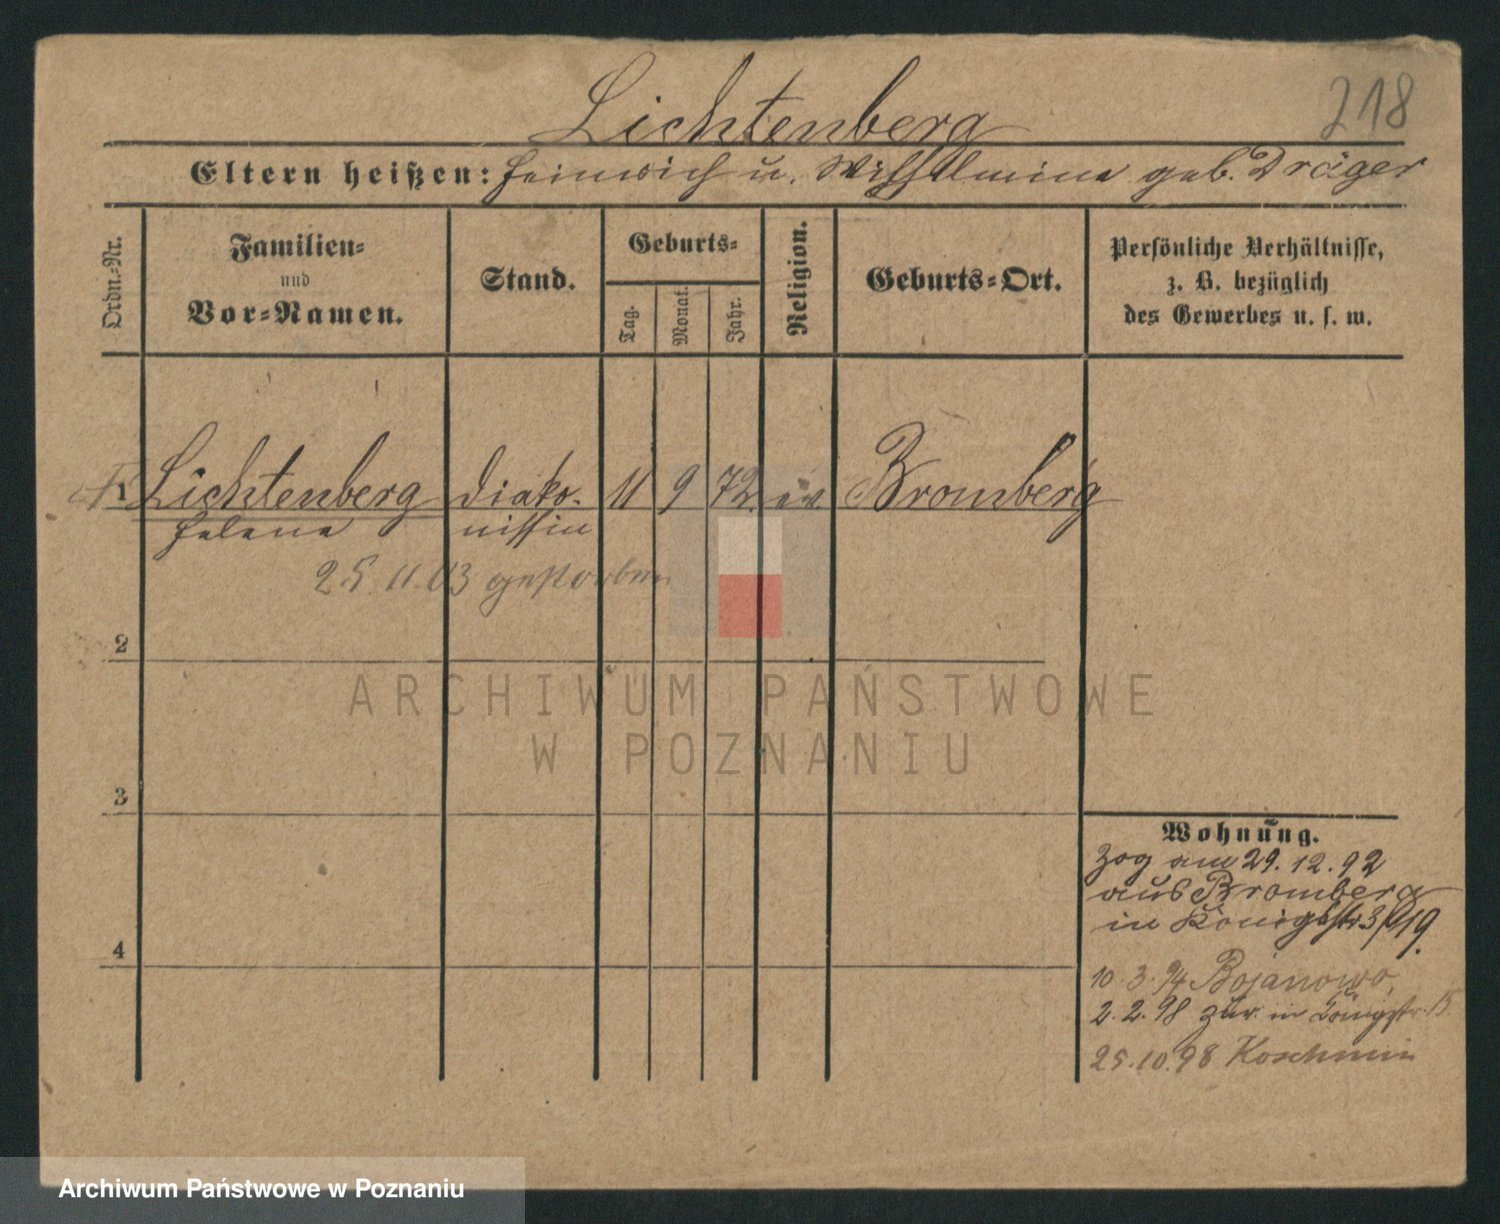 218
Lichtenberg
Eltern heißen: Heinrich u. Wilhelmine geb. Dräger
Ordn.-Nr.
Familien-
und
Vor-Namen.
Stand.
Geburts-
Tag.
Monat.
Jahr.
Religion.
Geburts-Ort.
Persönliche Verhältnisse,
z. B. bezüglich
des Gewerbes u. s. w.
1 Lichtenberg Diako- 11 9 72. ev. Bromberg
Helene nissin
25.11.03 gestorben
2
ARCHIWUM PAŃSTWOWE
W POZNANIU
3
4
Wohnung.
Zog am 29.12.92
aus Bromberg
in Königsstr 19.
10.3.94 Bojanowo,
2.2.98 zur. in Königstr. 15
25.10.98 Koschmin
Archiwum Państwowe w Poznaniu